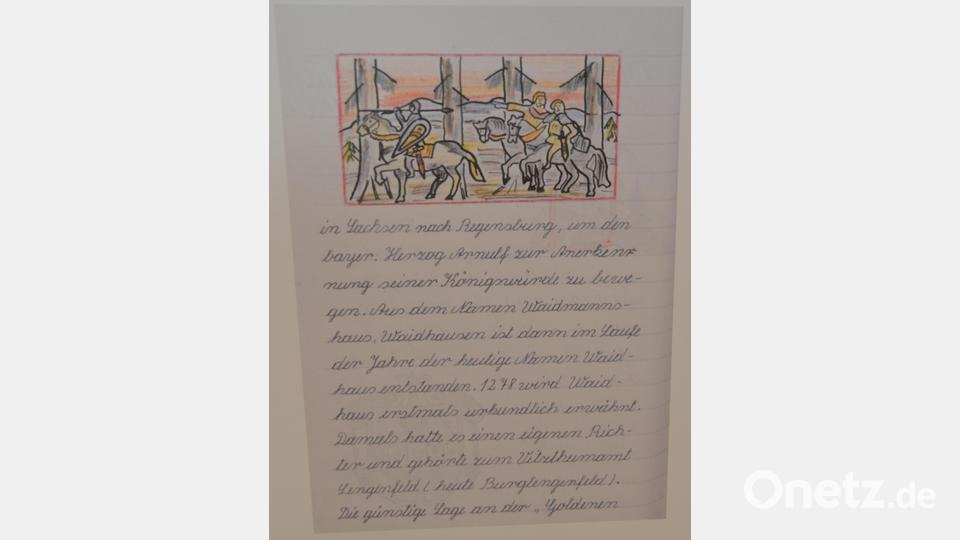 in Sachsen nach Regensburg, um den
bayer. Herzog Arnulf zur Anerken-
nung seiner Königswürde zu bewe-
gen. Aus dem Namen Waidmanns-
haus, Waidhausen ist dann im Laufe
der Jahre der heutige Namen Waid-
haus entstanden. 1278 wird Waid-
haus erstmals urkundlich erwähnt.
Damals hatte es einen eigenen Rich-
ter und gehörte zum Vitzthumamt
Lengenfeld (heute Burglengenfeld).
Die günstige Lage an der „Goldenen
Onetz.de